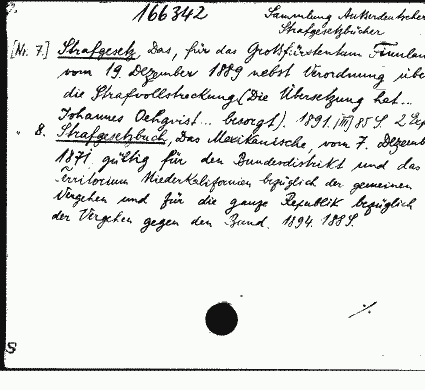 166342 Sammlung Außerdeutscher
Strafgesetzbücher
[Nr. 7.] Strafgesetz, Das, für das Großfürstentum Finnlan
vom 19. Dezember 1889 nebst Verordnung übe
die Strafvollstreckung (Die Übersetzung hat...
Johannes Oehquist... besorgt). 1891. (III) 85 S. 2 Bep
" 8. Strafgesetzbuch, Das Mexikanische, vom 7. Dezemb
1871. gültig für den Bundesdistrikt und das
Territorium Niederkalifornien bezüglich der gemeinen
Vergehen und für die ganze Republik bezüglich
der Vergehen gegen den Bund. 1894. 188 S.
S